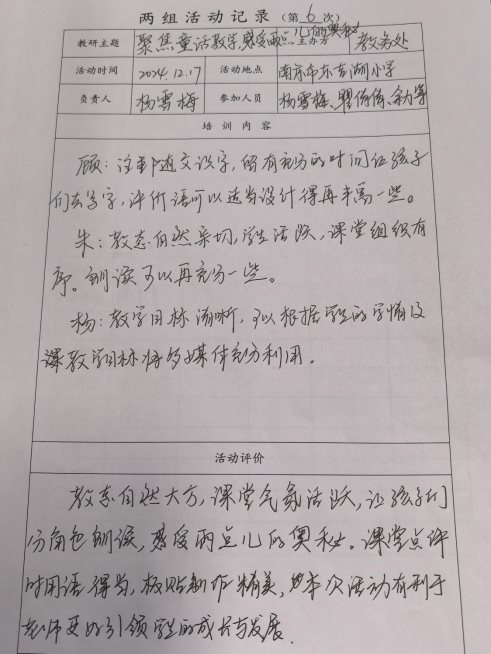 两组活动记录（第6次）
教研主题 聚焦童话教学,感受雨点儿的奥秘 主办方 教务处
活动时间 2024.12.17 活动地点 南京市东吉湖小学
负责人 杨雪梅 参加人员 杨雪梅、瞿倩倩、余力等
培训内容
顾：注重随文识字，留有充分的时间让孩子
们去写字，评价语可以适当设计得再丰富一些。
朱：教态自然亲切，学生活跃，课堂组织有
序。朗读可以再充分一些。
杨：教学目标清晰，可以根据学生的学情及
课教学目标将多媒体充分利用。
活动评价
教态自然大方，课堂气氛活跃，让孩子们
分角色朗读，感受雨点儿的奥秘。课堂点评
时用语得当，板贴制作精美，本次活动有利于
老师更好引领学生的成长与发展.